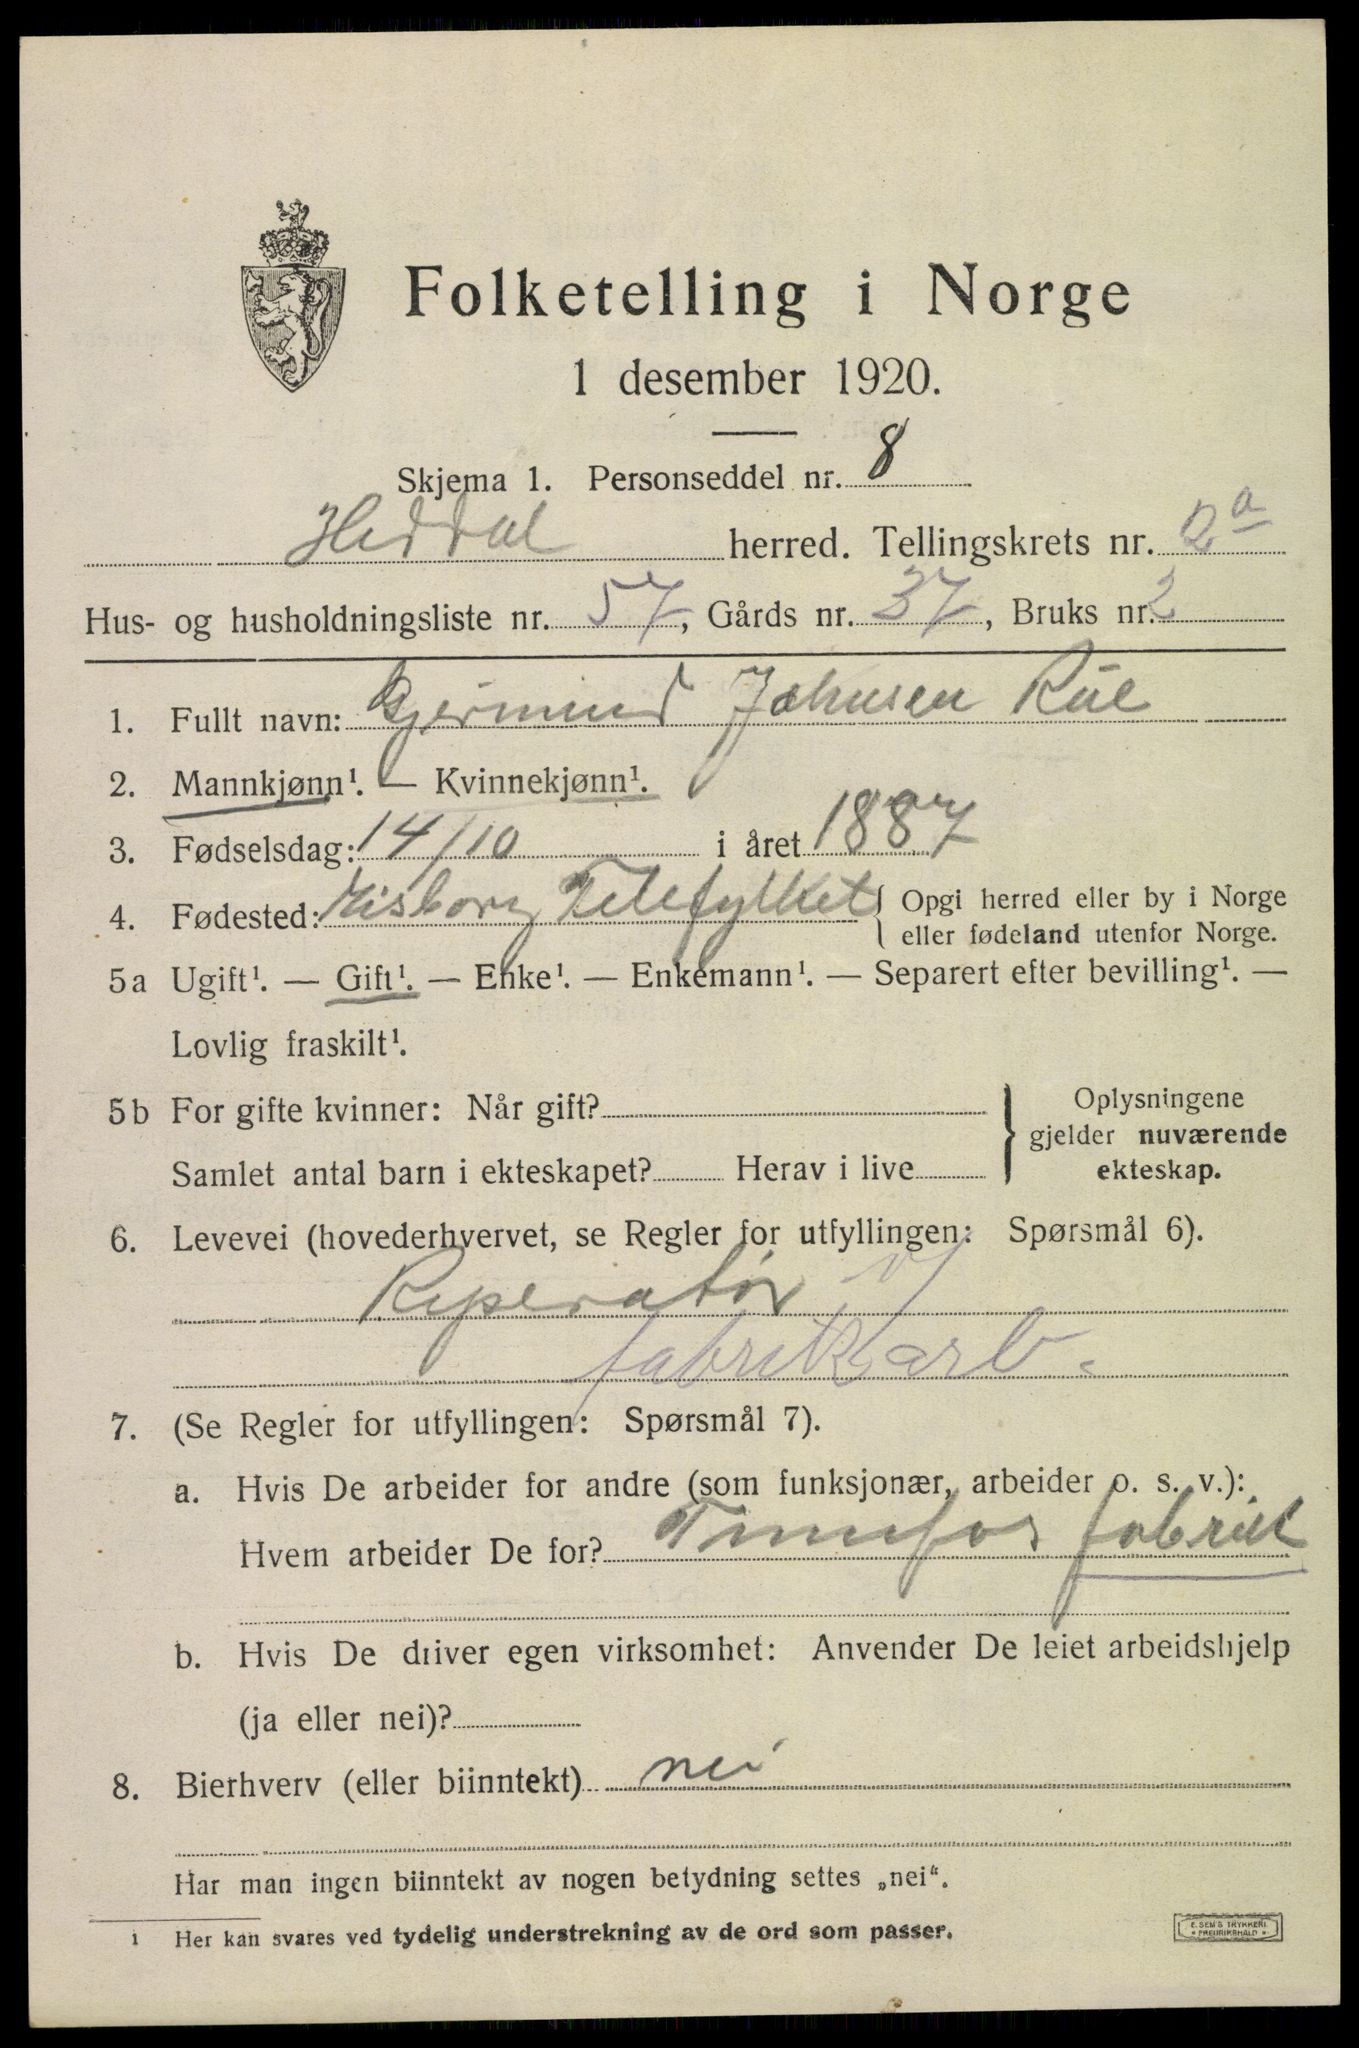 Folketelling i Norge
1 desember 1920.
Skjema 1. Personseddel nr. 8
Heddal herred. Tellingskrets nr. 2a
Hus- og husholdningsliste nr. 57, Gårds nr. 37, Bruks nr. 2
1. Fullt navn: Gjermund Johnsen Rue
2. Mannkjønn¹. — Kvinnekjønn¹.
3. Fødselsdag: 14/10 i året 1887
4. Fødested: Telefylket { Opgi herred eller by i Norge
eller fødeland utenfor Norge.
5a Ugift¹. — Gift¹. — Enke¹. — Enkemann¹. — Separert efter bevilling¹. —
Lovlig fraskilt¹.
5b For gifte kvinner: Når gift?
Samlet antal barn i ekteskapet? Herav i live
} Oplysningene
gjelder nuværende
ekteskap.
6. Levevei (hovederhvervet, se Regler for utfyllingen: Spørsmål 6).
Reperatør v/
fabrikkarb.
7. (Se Regler for utfyllingen: Spørsmål 7).
a. Hvis De arbeider for andre (som funksjonær, arbeider o. s. v.):
Hvem arbeider De for? Tinnfos fabrik
b. Hvis De driver egen virksomhet: Anvender De leiet arbeidshjelp
(ja eller nei)?
8. Bierhverv (eller biinntekt) nei
Har man ingen biinntekt av nogen betydning settes „nei“.
1 Her kan svares ved tydelig understrekning av de ord som passer.
E. SEM'S TRYKKERI
* FREDRIKSHALD *